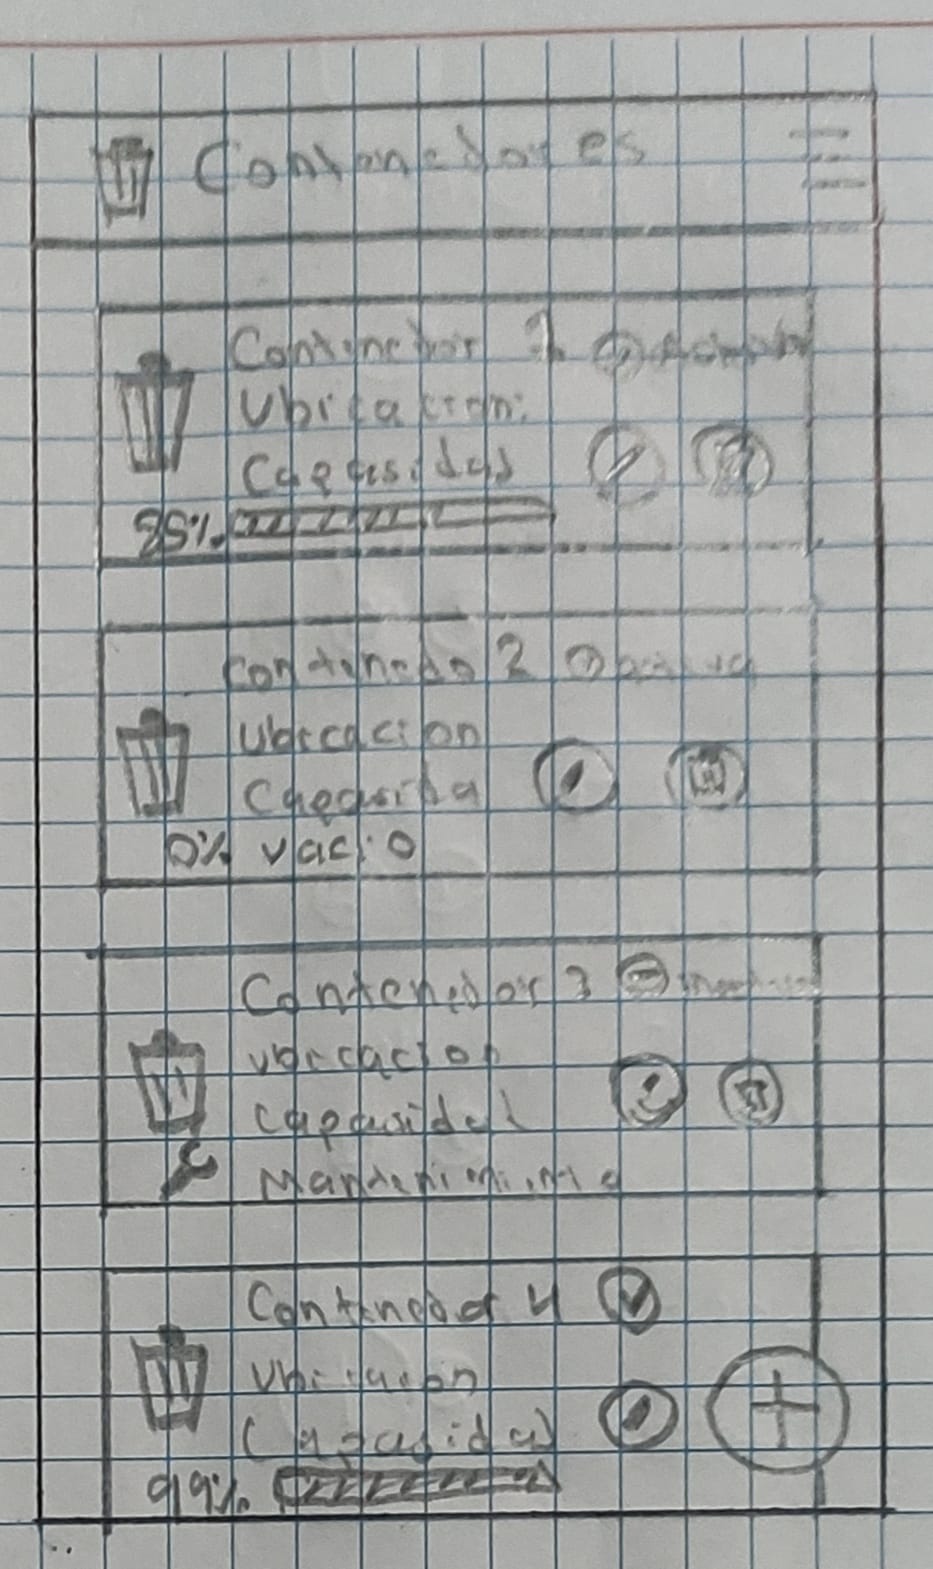 Contenedores
Contenedor 1
Ubicacion:
Capasidad
85%
Contenedo 2
Ubicacion
Capasida
0% vacio
Contenedor 3
Ubicacion
Capasidad
Mantenimiento
Contenedor 4
Ubicacion
Capasidad
99%